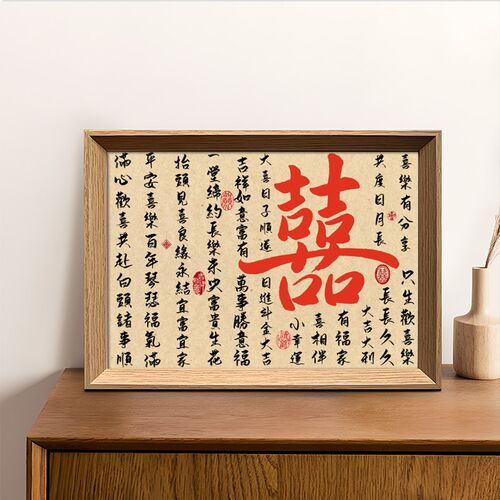 喜樂有分享
只生歡喜樂
共度日月長
長長久久
大吉大利
有福家
喜相伴
小幸運
囍
大喜日子順遂日進斗金大吉
吉祥如意富有萬事勝意福
一堂締約長樂未央富貴生花
抬頭見喜良緣永結宜富宜家
平安喜樂百年琴瑟福氣滿
滿心歡喜共赴白頭諸事順